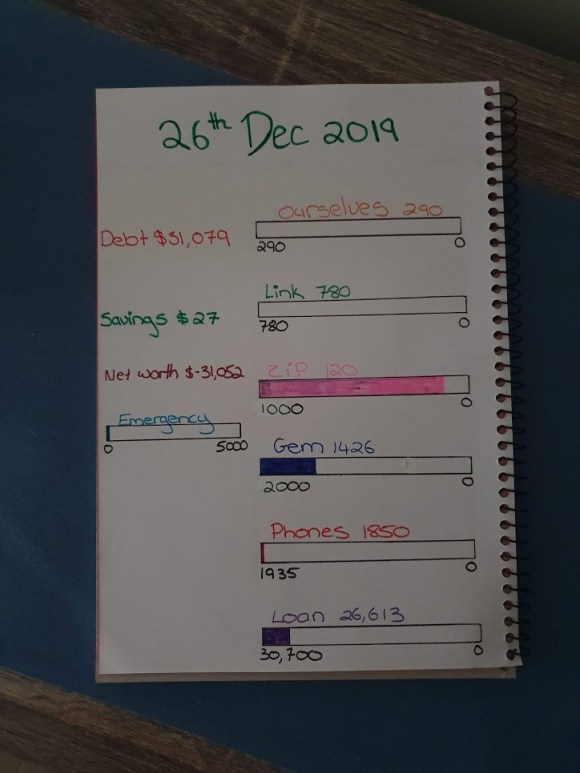 26th Dec 2019
Ourselves 290
290 0
Debt $31,079
Link 780
780 0
Savings $27
Net worth $-31,052
Emergency
0 5000
ZIP 120
1000 0
Gem 1426
2000 0
Phones 1850
1935 0
Loan 26,613
30,700 0